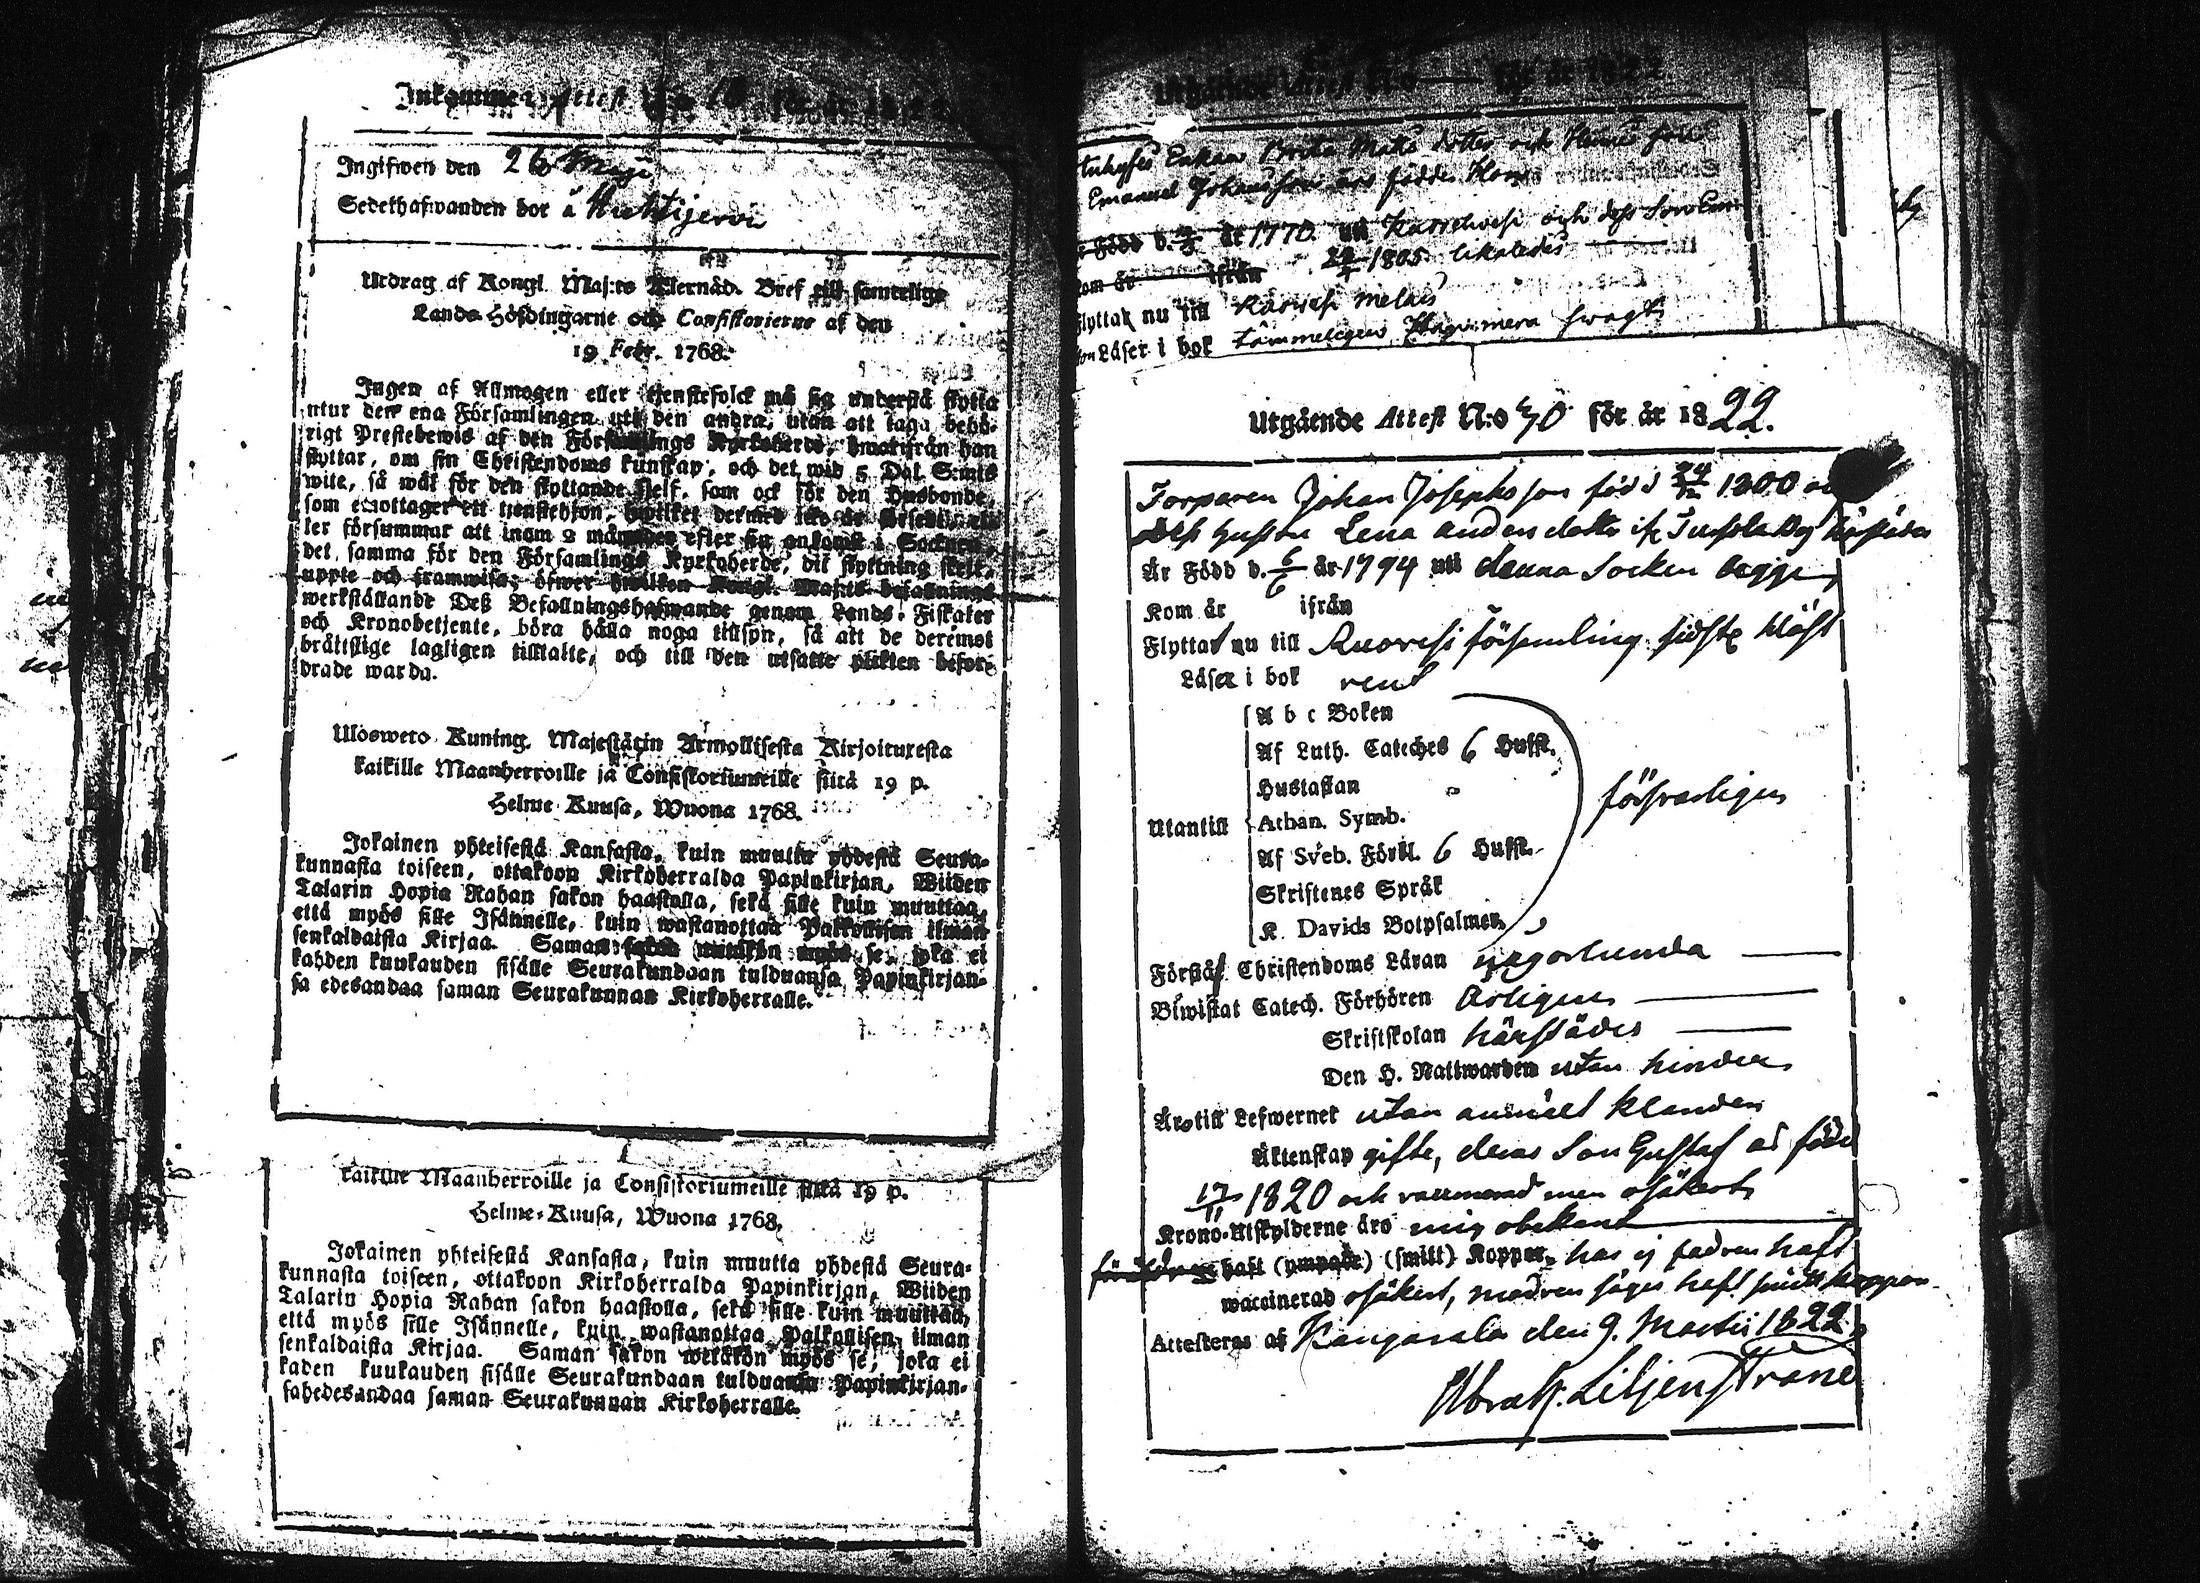 Inkommen Attest N:o 10 för år 1822
Ingifwen den 26 Maji
Sedelhafwanden bor å
Utdrag af Kongl. Maj:ts Allernåd. Bref till samtelige
Lands-Höfdingarne och Consistorierne af den
19 Febr. 1768.
Ingen af Allmogen eller tjenstefolck må sig understå flytta
utur den ena Församlingen uti den andra, utan att taga behö-
rigt Prestebewis af den Församlings Kyrkoherde, hwarifrån han
flyttar, om sin Christendoms kunskap, och det wid 5 Dal. S:mts
wite, så wäl för den flyttande sjelf, som ock för den Husbonde,
som emottager ett tjenstehjon, hwilket dermed icke är försedt, el-
ler försummar att inom 2 månader efter sin ankomst i Socknen,
det samma för den Församlings Kyrkoherde, dit flyttning skett,
uppte och framwisa; öfwer hwilken Kongl. Maj:ts befallnings
werkställande Deß Befallningshafwande genom Lands-Fiskaler
och Kronobetjente, böra hålla noga tillsyn, så att de deremot
bråttslige lagligen tilltalte, och till den utsatte plikten befor-
drade warda.
Ulosweto Kuning. Majestätin Armollisesta Kirjoituxesta
kaikille Maanherroille ja Consistoriumeille siitä 19 p.
Helme-Kuusa, Wuona 1768.
Jokainen yhteisestä Kansasta, kuin muutta yhdestä Seura-
kunnasta toiseen, ottakoon Kirkoherralda Papinkirjan, Wiiden
Talarin Hopia Rahan sakon haastolla, sekä sille kuin muuttaa,
että myös sille Isännelle, kuin wastanottaa Palkollisen ilman
senkaldaista Kirjaa. Saman sakon wetäkön myös se, joka ei
kahden kuukauden sisälle Seurakundaan tulduansa Papinkirjan-
sa edesandaa saman Seurakunnan Kirkoherralle.
kaikille Maanherroille ja Consistoriumeille siitä 19 p.
Helme-Kuusa, Wuona 1768.
Jokainen yhteisestä Kansasta, kuin muutta yhdestä Seura-
kunnasta toiseen, ottakoon Kirkoherralda Papinkirjan, Wiiden
Talarin Hopia Rahan sakon haastolla, sekä sille kuin muuttaa,
että myös sille Isännelle, kuin wastanottaa Palkollisen ilman
senkaldaista Kirjaa. Saman sakon wetäkön myös se, joka ei
kaden kuukauden sisälle Seurakundaan tulduansa Papinkirjan-
sahedesandaa saman Seurakunnan Kirkoherralle.
Utgående Attest N:o för år 1822.
Enkan Brita Mats dotter och Hennes son
Emanuel Johansson äro födde Hon
Född d. år 1770 uti och dess Son Em.
Kom år ifrån 1805 likaledes
Flyttar nu till Ruovesi
Läser i bok
Utgående Attest N:o 70 för år 1822.
Torparen Johan Josephsson född 24/12 1800 och
dess hustru Lena härstädes
Är Född d. 6/6 år 1794 uti denna Socken begge
Kom år ifrån
Flytta nu till Ruovesi församling sidste höst
Läsa i bok rent
A b c Boken
Af Luth. Cateches 6 Hufst.
Hustaflan
Utantill Athan. Symb. försvarligen
Af Sveb. Förkl. 6 Hufst.
Skriftenes Språk
K. Davids Botpsalmer
Förstå Christendoms Läran någorlunda
Biwistat Catech. Förhören Årligen
Skriftskolan härstädes
Den H. Nattwarden utan hinder
Äro till Lefwernet utan anmält klander
Äktenskap gifte, deras Son Gustaf är född
17/11 1820 och vaccinerad men osäkert
Krono-Utskylderne äro mig obekant
haft (ympade) (smitt) Koppor har ej fadren haft
waccinerad osäkert, modren säges haft smitt koppor
Attesteras af Kangasala den 9. Martii 1822.
Abrah. Liljenstrand